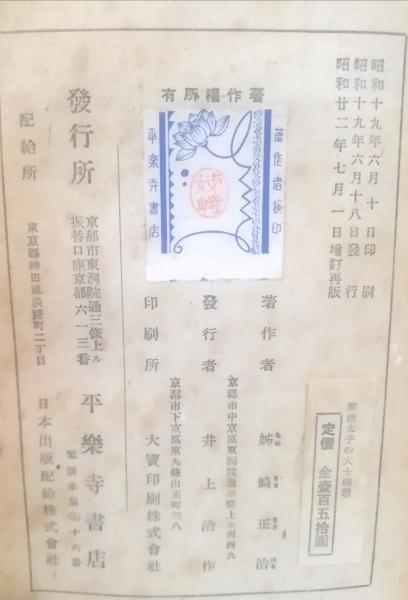 昭和十九年六月十日印刷
昭和十九年六月十八日發行
昭和廿二年七月一日增訂再版
著作權所有
著作者検印
姉崎
平楽寺書店
聖德太子の大士理想
定價 金壹百五拾圓
著作者 姉崎正治
京都市中京區東洞院通三條上ル
發行者 井上治作
京都市下京區東九條山王町
印刷所 大寶印刷株式會社
發行所
京都市東洞院通三條上ル
振替口座京都六一三番
平樂寺書店
電話本局
十六番
配給所
東京都神田區淡路町二丁目
日本出版配給株式會社